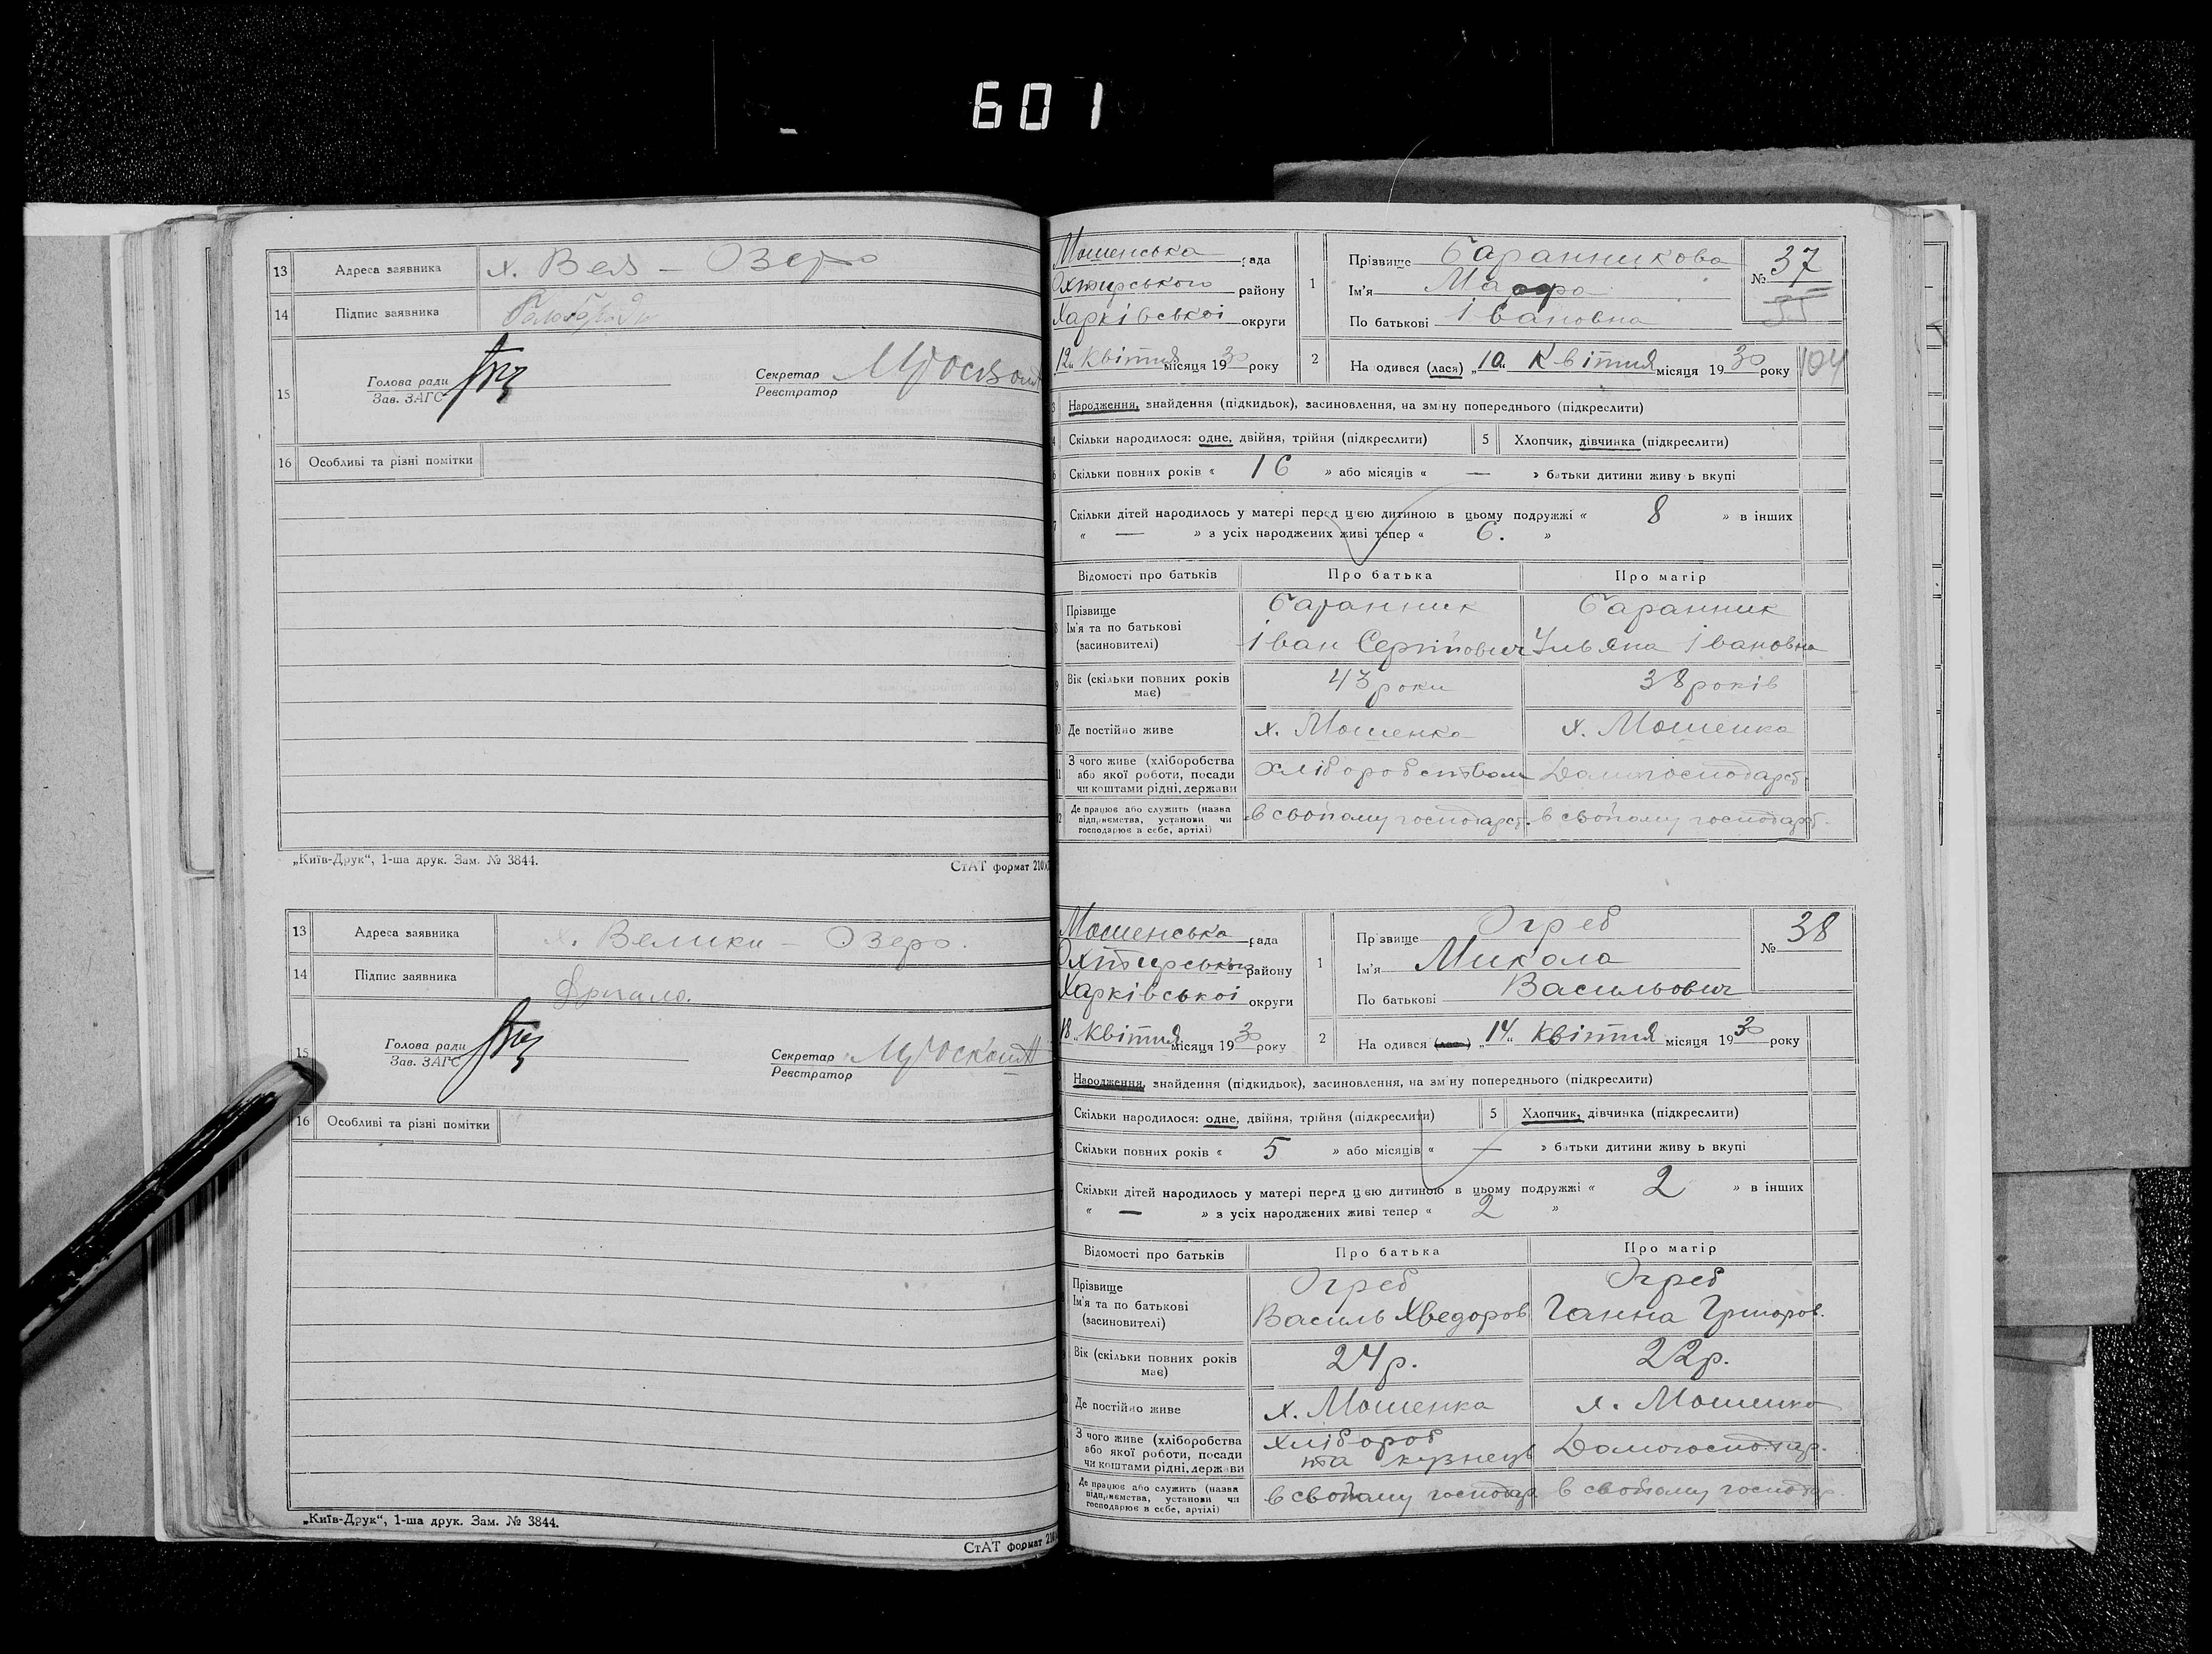 601
13 Адреса заявника х. Вел – Озеро
14 Підпис заявника
15 Голова ради
Зав. ЗАГС
Секретар
Реєстратор
16 Особливі та різні помітки
„Київ-Друк“, 1-ша друк. Зам. № 3844.
СтАТ формат 210
13 Адреса заявника х. Велики – Озеро.
14 Підпис заявника
15 Голова ради
Зав. ЗАГС
Секретар
Реєстратор
16 Особливі та різні помітки
„Київ-Друк“, 1-ша друк. Зам. № 3844.
СтАТ формат
Мошенська рада
Охтирського району
Харківської округи
12 Квітня місяця 1930 року
1 Прізвище Баранникова
Ім'я Марфа
По батькові Івановна
№ 37
2 На одився (лася) „10“ Квітня місяця 1930 року
104
Народження, знайдення (підкидьок), засиновлення, на зміну попереднього (підкреслити)
Скільки народилося: одне, двійня, трійня (підкреслити) 5 Хлопчик, дівчинка (підкреслити)
Скільки повних років « 16 » або місяців « — » батьки дитини живу ь вкупі
Скільки дітей народилось у матері перед цією дитиною в цьому подружжі « 8 » в інших
« — » з усіх народжених живі тепер « 6. »
Відомості про батьків Про батька Про матір
Прізвище Баранник Баранник
Ім'я та по батькові
(засиновителі) Іван Сергійович Ульяна Івановна
Вік (скільки повних років має) 43 роки 38 років
Де постійно живе х. Мошенка х. Мошенка
З чого живе (хліборобства Хліборобством Домогосподарст.
або якої роботи, посади
чи коштами рідні, держави
Де працює або служить (назва в свойому господарст. в свойому господарст.
підприємства, установи чи
господарює в себе, артілі)
Мошенська рада
Охтирського району
Харківської округи
18 Квітня місяця 1930 року
1 Прізвище Огреб
Ім'я Микола
По батькові Васильович
№ 38
2 На одився (лася) „14“ Квітня місяця 1930 року
Народження, знайдення (підкидьок), засиновлення, на зміну попереднього (підкреслити)
Скільки народилося: одне, двійня, трійня (підкреслити) 5 Хлопчик, дівчинка (підкреслити)
Скільки повних років « 5 » або місяців « — » батьки дитини живу ь вкупі
Скільки дітей народилось у матері перед цією дитиною в цьому подружжі « 2 » в інших
« — » з усіх народжених живі тепер « 2 »
Відомості про батьків Про батька Про матір
Прізвище Огреб Огреб
Ім'я та по батькові
(засиновителі) Василь Хведоров Ганна Григоров.
Вік (скільки повних років має) 24 р. 22 р.
Де постійно живе х. Мошенка х. Мошенка
З чого живе (хліборобства Хлібороб Домогосподар.
або якої роботи, посади та кузнець
чи коштами рідні, держави
Де працює або служить (назва в свойому господар. в свойому господар.
підприємства, установи чи
господарює в себе, артілі)